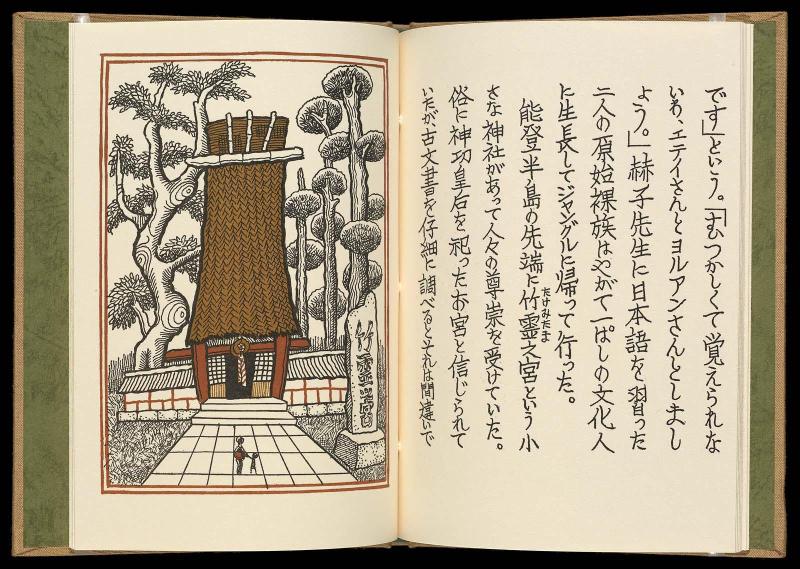 です」という。「むつかしくて覚えられな
いわ、エテイさんとヨルアンさんとしまし
よう。」赫子先生に日本語を習った
二人の原始裸族はやがて一ぱしの文化人
に生長してジャングルに帰って行った。
能登半島の先端に竹霊之宮という小
たけみたま
さな神社があって人々の尊崇を受けていた。
俗に神功皇后を祀ったお宮と信じられて
いたが古文書を仔細に調べるとそれは間違いで
竹霊之宮